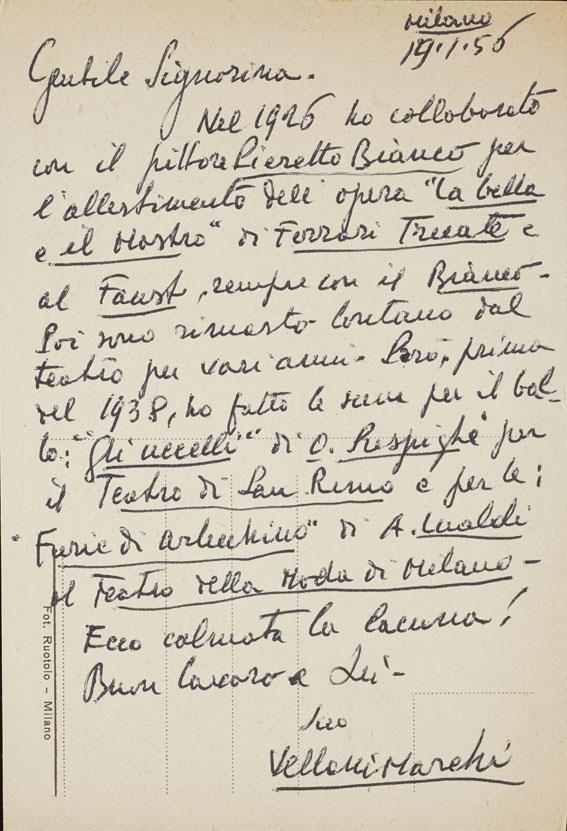 Milano
19.1.56
Gentile Signorina.
Nel 1926 ho collaborato
con il pittore Pieretto Bianco per
l'allestimento dell'opera "La bella
e il Mostro" di Ferrari Trecate e
al Faust, sempre con il Bianco-
Poi sono rimasto lontano dal
teatro per vari anni. Però, prima
del 1938, ho fatto le scene per il bal-
lo: "Gli uccelli" di O. Respighi per
il Teatro di San Remo e per le:
Furie di Arlecchino" di A. Lualdi
al Teatro della Moda di Milano-
Ecco colmata la lacuna!
Buon Lavoro a Lei-
Suo
Vellani Marchi
Fot. Ruotolo - Milano